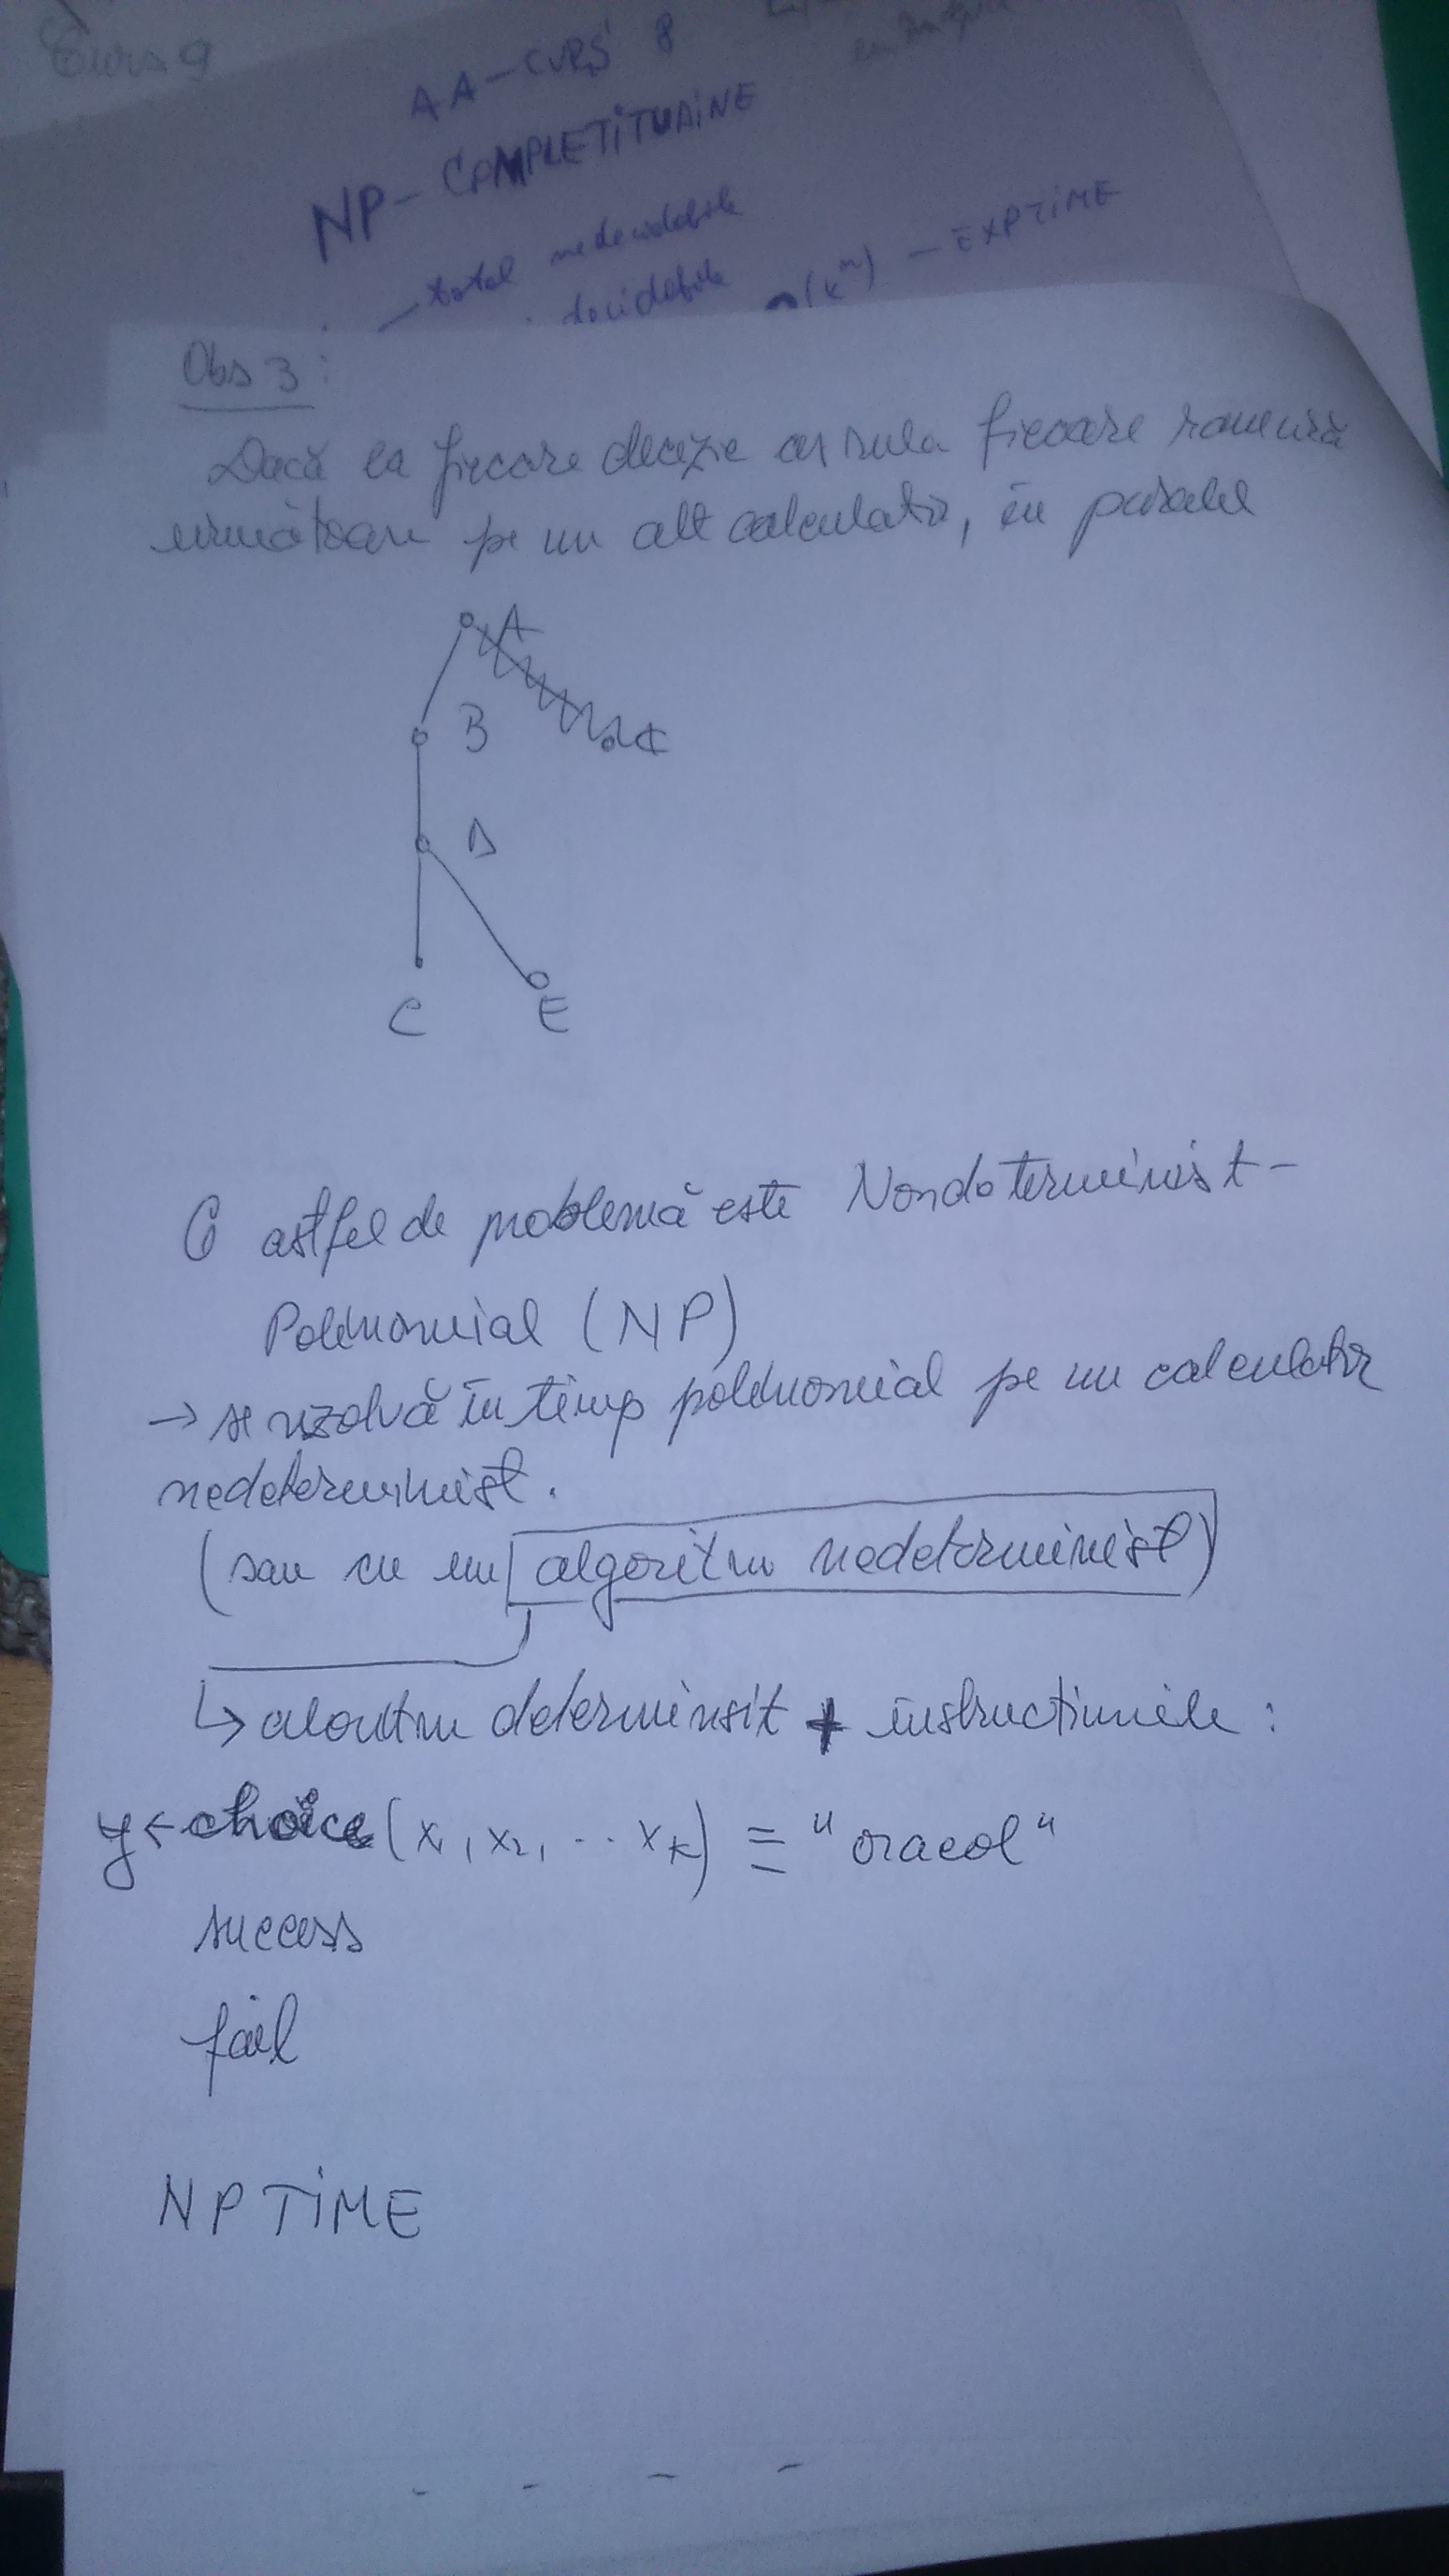 Curs 9
AA - CURS 8
NP - COMPLETITUDINE
total nedecidabile
decidabile (k^n) - EXPTIME
Obs 3:
Dacă la fiecare decizie aș rula fiecare ramură
următoare pe un alt calculator, în paralel
A
B C
D
C E
O astfel de problemă este Nondeterminist-
Polinomial (NP)
→ se rezolvă în timp polinomial pe un calculator
nedeterminist.
(sau cu un algoritm nedeterminist)
↳ algoritm determinsit + instrucțiunile:
y ← choice (x1, x2, ... xk) ≡ "oracol"
success
fail
NPTIME